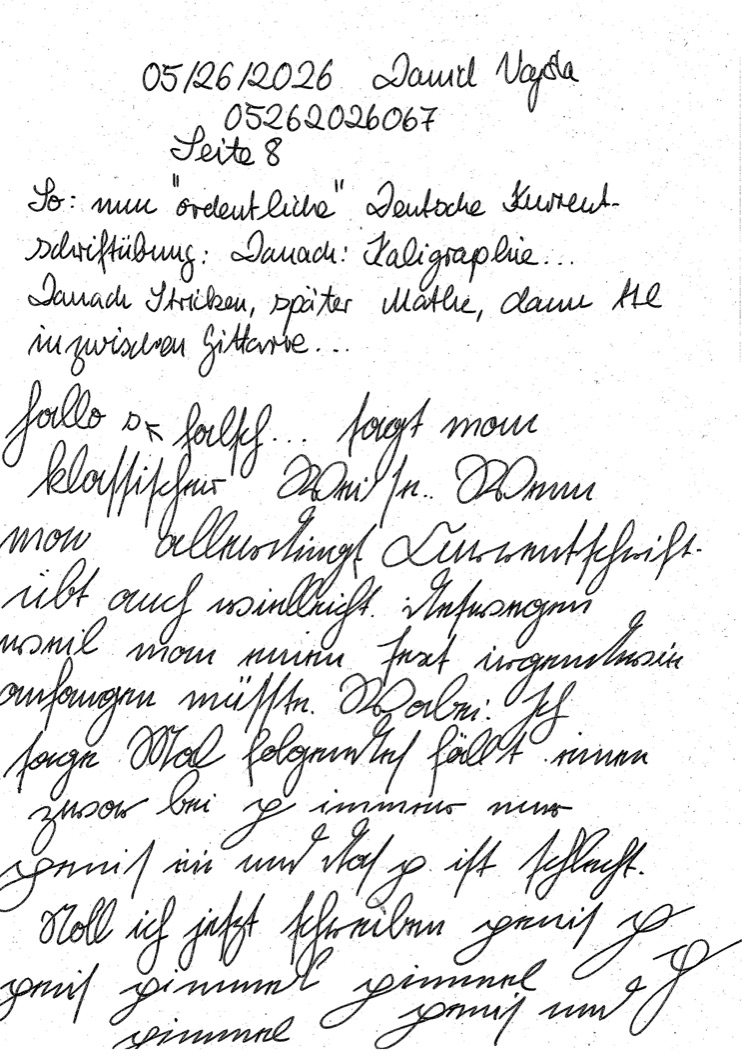 05/26/2026 David Vajda
05262026067
Seite 8
So: nun "ordentliche" Deutsche Kurrent-
schriftübung: Danach: Kaligraphie...
Danach Stricken, später Mathe, dann
inzwischen Gittarre...
hallo falsch... sagt man
klassischer Weise.. Wenn
man allerdings Kurrentschrift
übt auch vielleicht. Deswegen
weil man einen text irgendwie
anfangen müsste. Wobei: Ich
sage Mal folgendes fällt einen
zwar bei p immer nur
penis ein und das p. ist schlecht.
Soll ich jetzt schreiben penis p
penis pimmel pimmel p
pimmel penis und